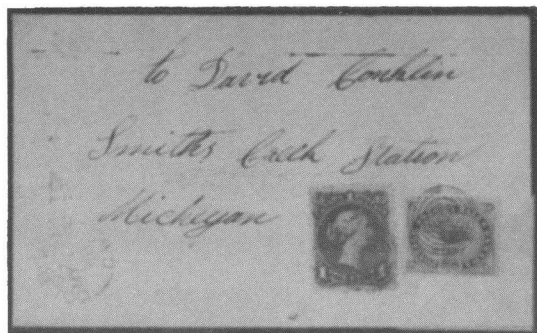 to David Conklin
Smith's Creek Station
Michigan
1 1